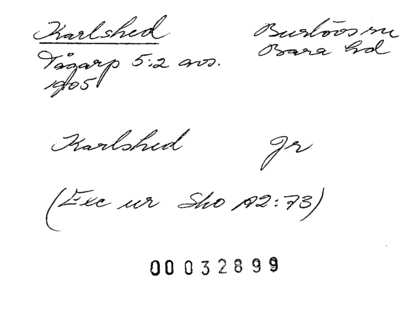 Karlshed Burlövs sn
Tågarp 5:2 avs. Bara hd
1905
Karlshed Gr
(Exc ur Sho A2:73)
00032899